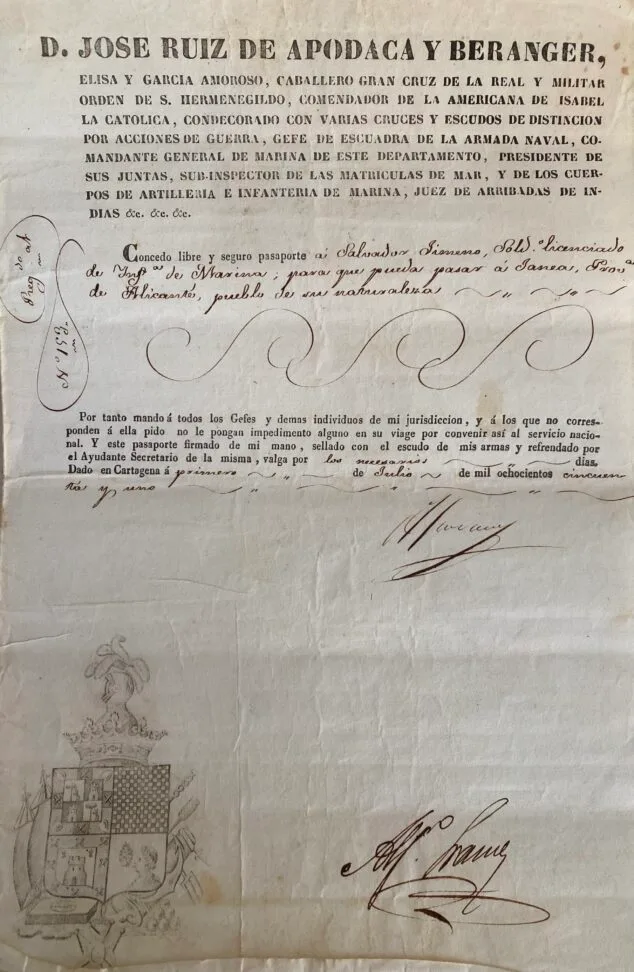 D. JOSE RUIZ DE APODACA Y BERANGER,
ELISA Y GARCIA AMOROSO, CABALLERO GRAN CRUZ DE LA REAL Y MILITAR
ORDEN DE S. HERMENEGILDO, COMENDADOR DE LA AMERICANA DE ISABEL
LA CATOLICA, CONDECORADO CON VARIAS CRUCES Y ESCUDOS DE DISTINCION
POR ACCIONES DE GUERRA, GEFE DE ESCUADRA DE LA ARMADA NAVAL, CO-
MANDANTE GENERAL DE MARINA DE ESTE DEPARTAMENTO, PRESIDENTE DE
SUS JUNTAS, SUB-INSPECTOR DE LAS MATRICULAS DE MAR, Y DE LOS CUER-
POS DE ARTILLERIA E INFANTERIA DE MARINA, JUEZ DE ARRIBADAS DE IN-
DIAS &c. &c. &c.
Concedo libre y seguro pasaporte á Salvador Jimeno, Sold.º licenciado
de Inf.ª de Marina; para que pueda pasar á Janea, Prov.ª
de Alicante, pueblo de su naturaleza
Por tanto mando á todos los Gefes y demas individuos de mi jurisdiccion, y á los que no corres-
ponden á ella pido no le pongan impedimento alguno en su viage por convenir así al servicio nacio-
nal. Y este pasaporte firmado de mi mano, sellado con el escudo de mis armas y refrendado por
el Ayudante Secretario de la misma, valga por los necesarios días.
Dado en Cartagena á primero de Julio de mil ochocientos cincuen
ta y uno